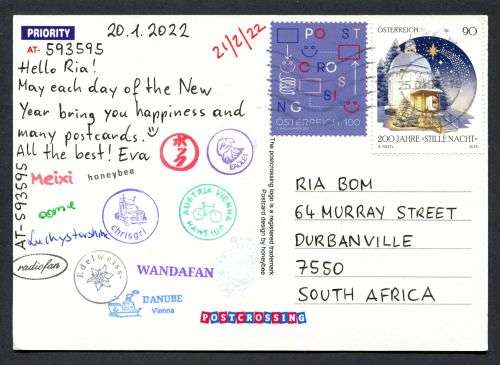 PRIORITY
20.1.2022
AT- 593595
21/2/22
Hello Ria!
May each day of the New
Year bring you happiness and
many postcards.
All the best! Eva
AT-593595
Meixi
honeybee
EAGLES
chrisgri
AUSTRIA VIENNA
radiofan
Edelweiss
WANDAFAN
DANUBE
Vienna
POST
CROSSI
NG
ÖSTERREICH 100
ÖSTERREICH
90
25
200 JAHRE »STILLE NACHT«
The postcrossing logo is a registered trademark
Postcard design by honeybee
RIA BOM
64 MURRAY STREET
DURBANVILLE
7550
SOUTH AFRICA
POSTCROSSING